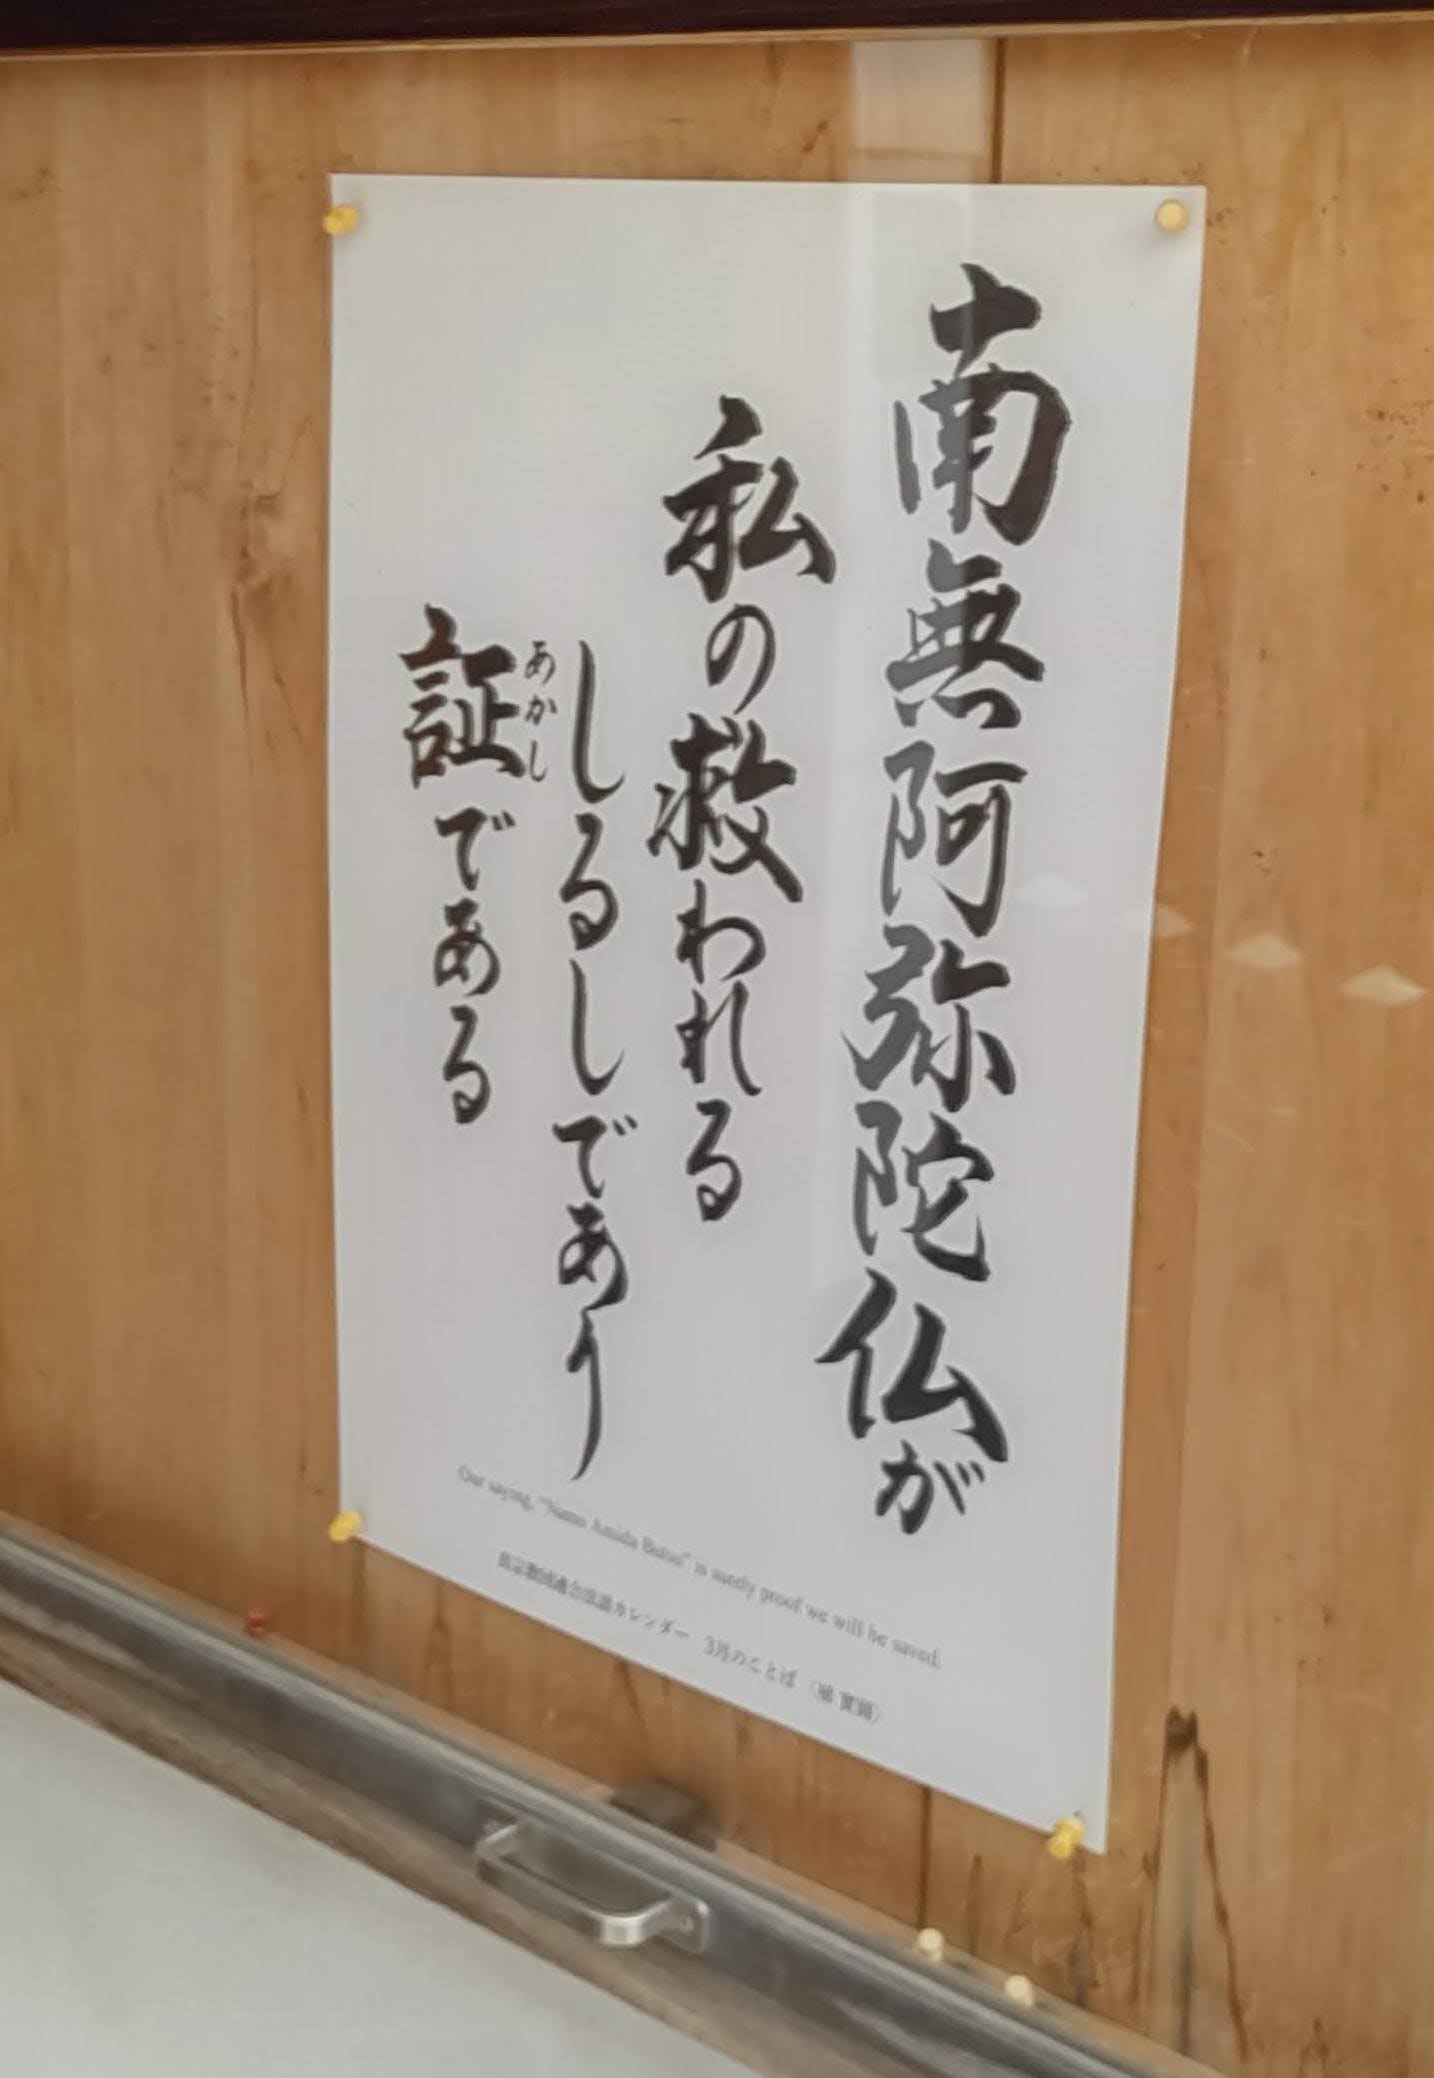 南無阿弥陀仏が
私の救われる
しるしであり
証である
あかし
Our saying, "Namo Amida Butsu" is surely proof we will be saved.
真宗教団連合法語カレンダー 3月のことば